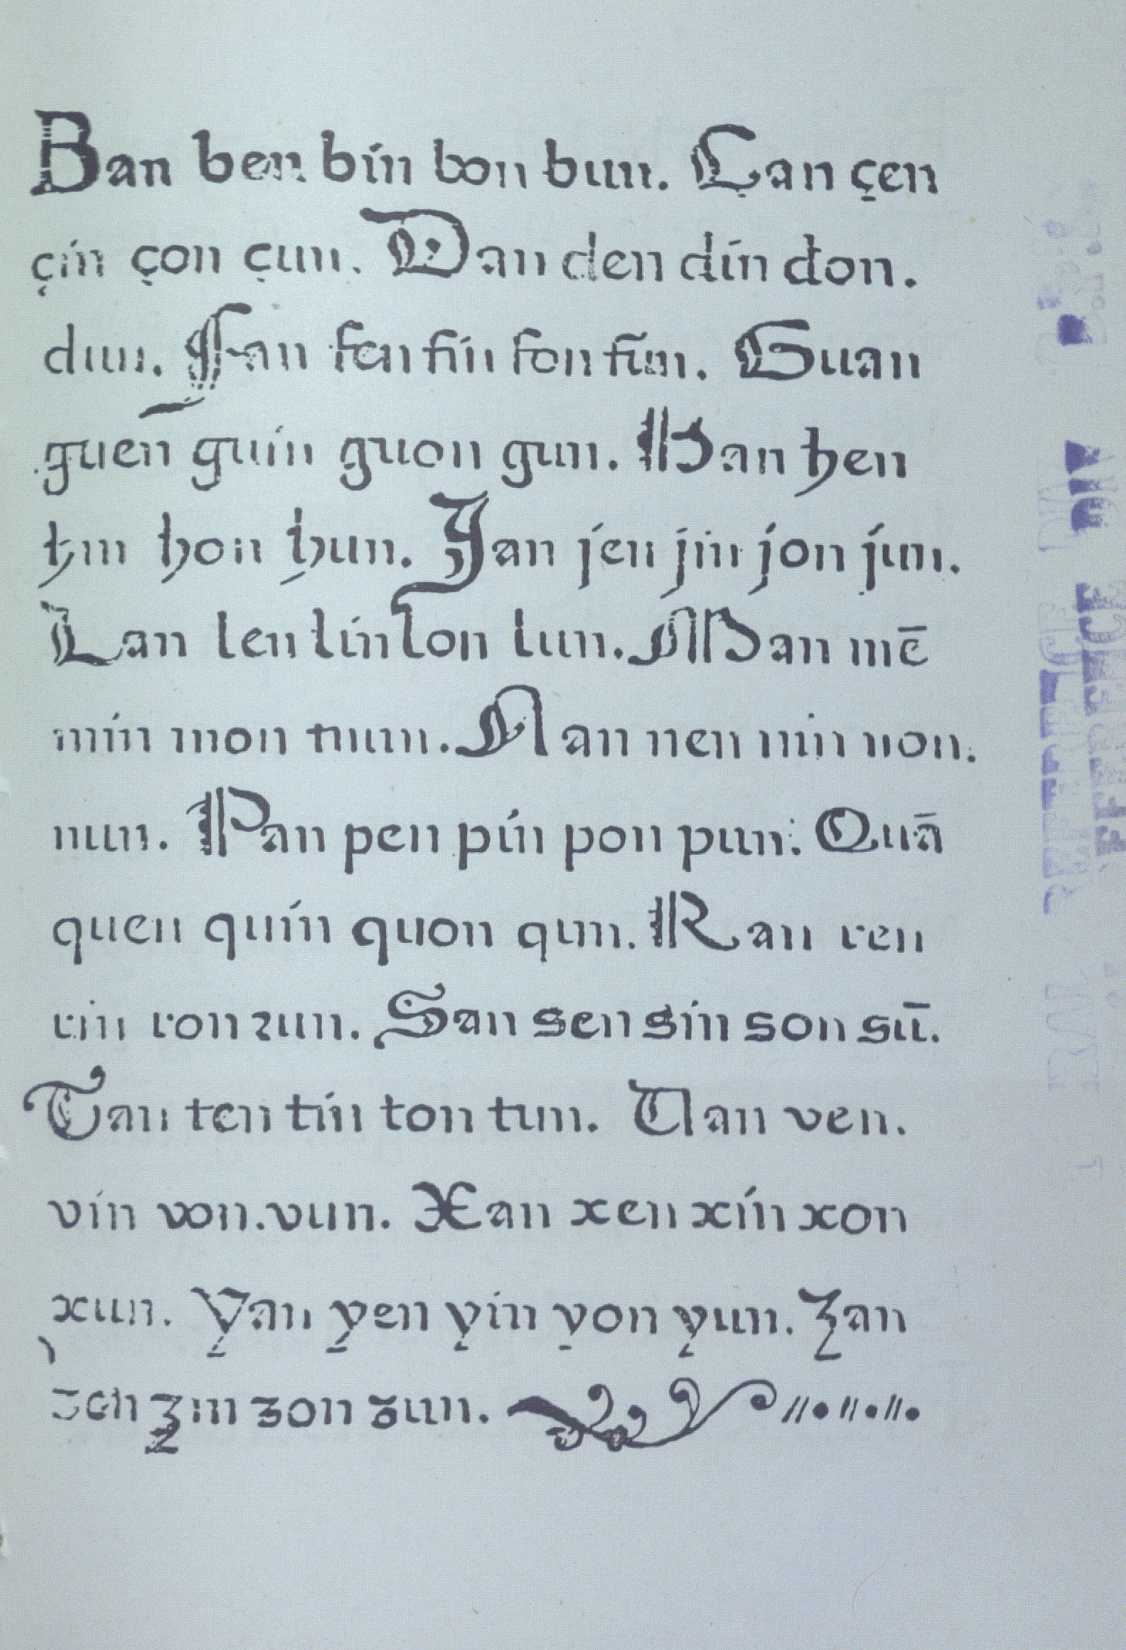 Ban ben bin bon bun. Çan çen
çin çon çun. Dan den din don.
dun. Fan fen fin fon fun. Guan
guen guin guon gun. Han hen
hin hon hun. Jan jen jin jon jun.
Lan len lin lon lun. Man mē
min mon mun. Nan nen nin non.
nun. Pan pen pin pon pun. Quā
quen quin quon qun. Ran ren
rin ron run. San sen sin son sū.
Tan ten tin ton tun. Van ven.
vin von. vun. Xan xen xin xon
xun. Yan yen yin yon yun. Zan
zen zin zon zun.